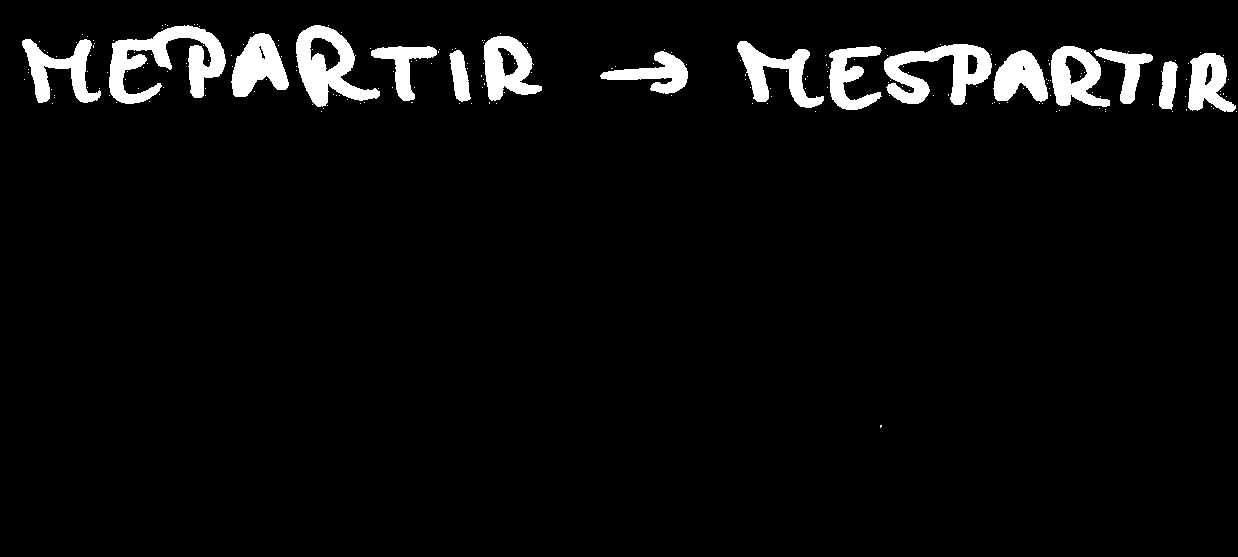 MEPARTIR → MESPARTIR